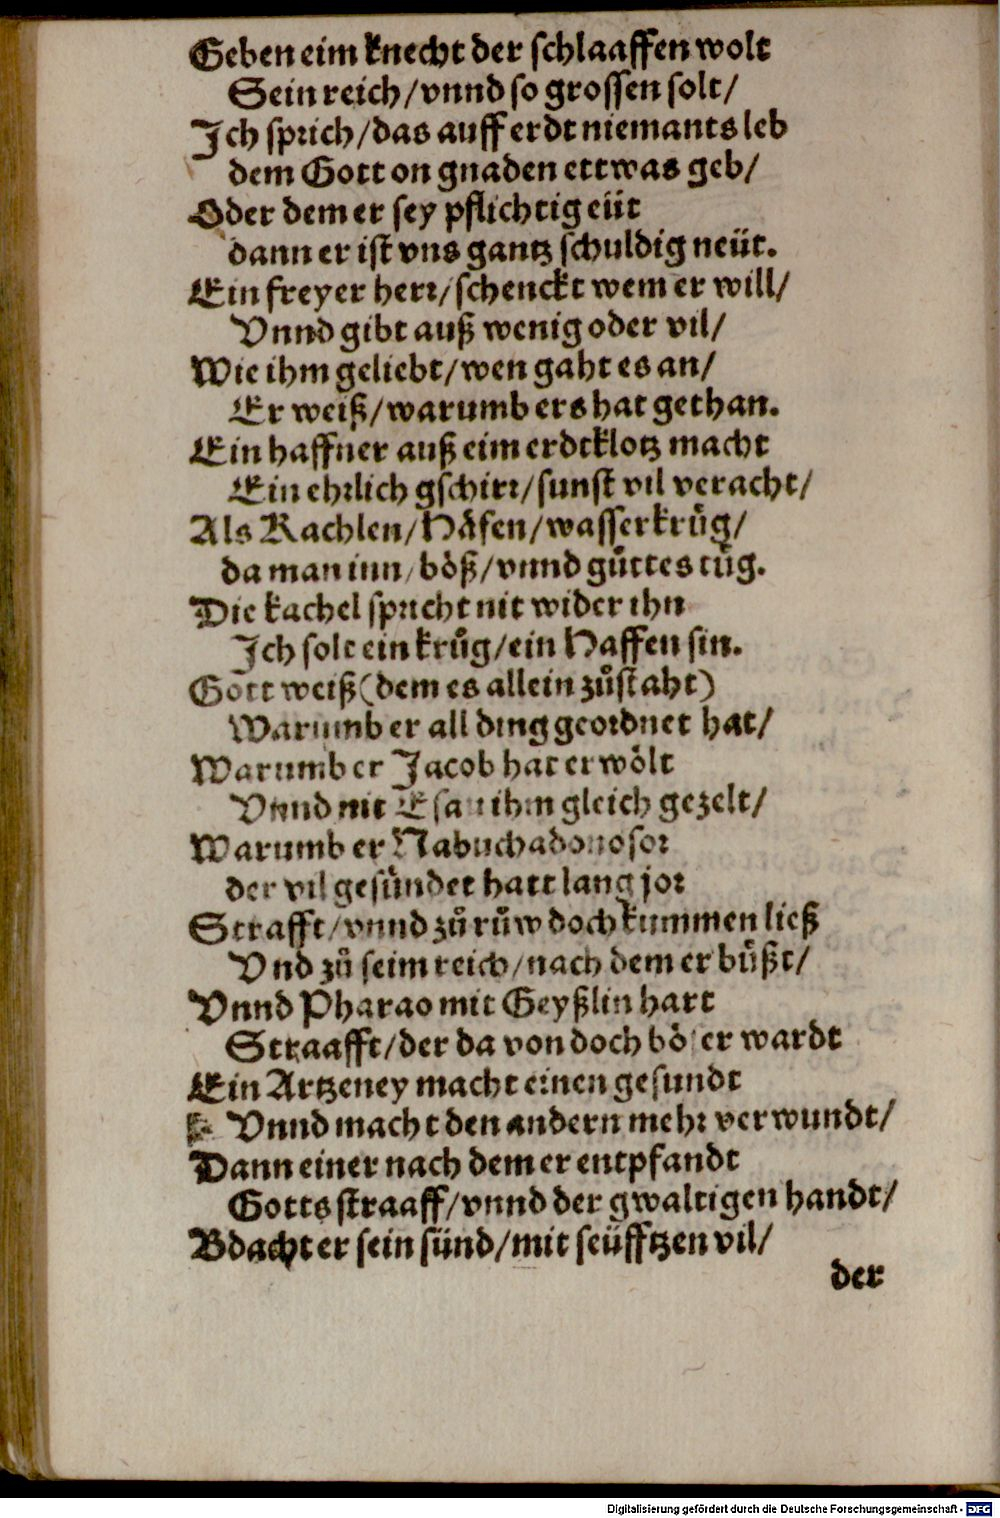 Geben eim knecht der schlaaffen wolt
Sein reich/vnnd so grossen solt/
Jch sprich/das auff erdt niemants leb
dem Gott on gnaden ettwas geb/
Oder dem er sey pflichtig eüt
dann er ist vns gantz schuldig neüt.
Ein freyer herr/schenckt wem er will/
Vnnd gibt auß wenig oder vil/
Wie ihm geliebt/wen gaht es an/
Er weiß/warumb ers hat gethan.
Ein haffner auß eim erdtklotz macht
Ein ehrlich gschirr/sunst vil veracht/
Als Kachlen/Häfen/wasserkrůg/
da man inn/böß/vnnd gůttes tůg.
Die kachel spricht nit wider ihn
Jch solt ein krůg/ein Haffen sin.
Gott weiß(dem es allein zůstaht)
Warumb er all ding geordnet hat/
Warumb er Jacob hat erwölt
Vnnd nit Esau ihm gleich gezelt/
Warumb er Nabuchadonosor
der vil gesündet hatt lang jor
Strafft/vnnd zů růw doch kummen ließ
Vnd zů seim reich/nach dem er bůßt/
Vnnd Pharao mit Geyßlin hart
Straafft/der da von doch böser wardt
Ein Artzeney macht einen gesundt
Vnnd macht den andern mehr verwundt/
Dann einer nach dem er entpfandt
Gotts straaff/vnnd der gwaltigen handt/
Bdacht er sein sünd/mit seüfftzen vil/
der
Digitalisierung gefördert durch die Deutsche Forschungsgemeinschaft - DFG